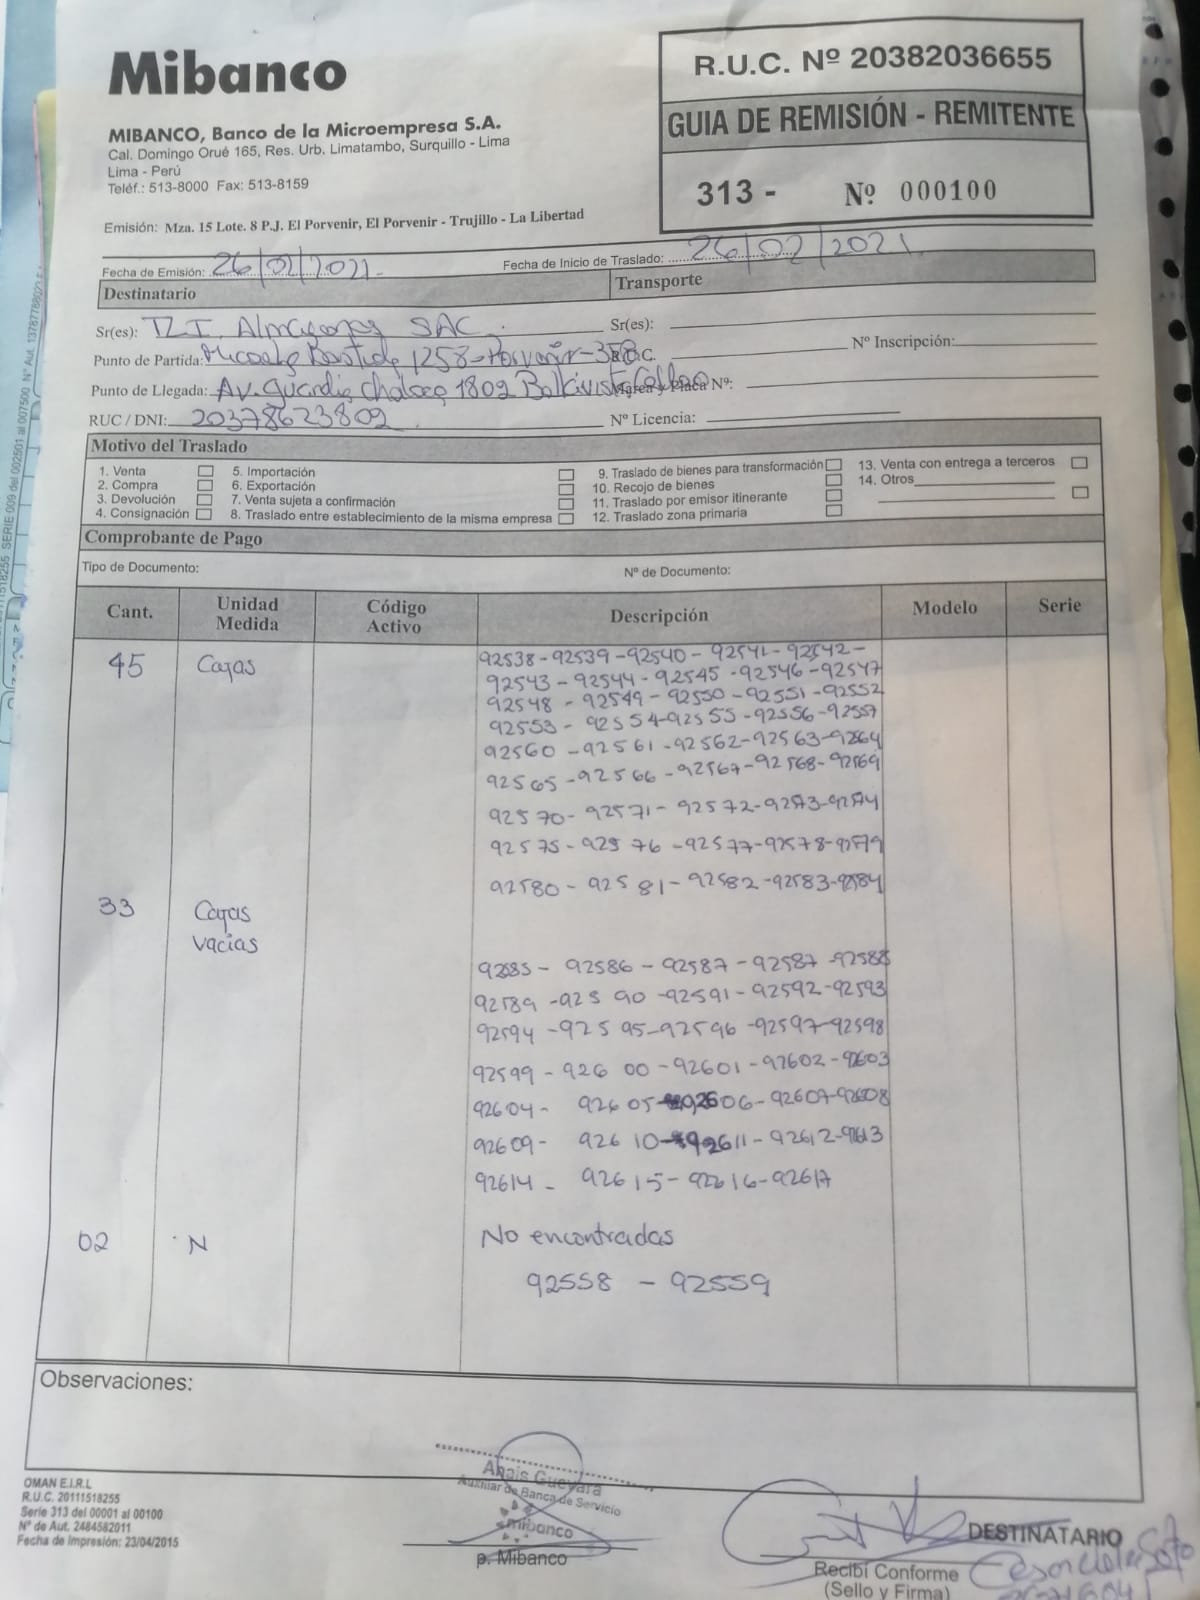 Mibanco
MIBANCO, Banco de la Microempresa S.A.
Cal. Domingo Orué 165, Res. Urb. Limatambo, Surquillo - Lima
Lima - Perú
Teléf.: 513-8000 Fax: 513-8159
Emisión: Mza. 15 Lote. 8 P.J. El Porvenir, El Porvenir - Trujillo - La Libertad
R.U.C. Nº 20382036655
GUIA DE REMISIÓN - REMITENTE
313 - Nº 000100
Fecha de Emisión: 26/02/2021 Fecha de Inicio de Traslado: 26/02/2021
Destinatario Transporte
Sr(es): TLI Almacenes SAC. Sr(es):
Punto de Partida: Bastida 1258-Porvenir- R.U.C. Nº Inscripción:
Punto de Llegada: Av. Guardia Chalaca 1802 Bellavista Callao Placa Nº:
RUC / DNI: 20378623802 Nº Licencia:
Motivo del Traslado
1. Venta 5. Importación 9. Traslado de bienes para transformación 13. Venta con entrega a terceros
2. Compra 6. Exportación 10. Recojo de bienes 14. Otros
3. Devolución 7. Venta sujeta a confirmación 11. Traslado por emisor itinerante
4. Consignación 8. Traslado entre establecimiento de la misma empresa 12. Traslado zona primaria
Comprobante de Pago
Tipo de Documento: Nº de Documento:
Cant. Unidad Medida Código Activo Descripción Modelo Serie
45 Cajas 92538-92539-92540-92541-92542-
92543-92544-92545-92546-92547
92548-92549-92550-92551-92552
92553-92554-92555-92556-92557
92560-92561-92562-92563-92564
92565-92566-92567-92568-92569
92570-92571-92572-92573-92574
92575-92576-92577-92578-92579
92580-92581-92582-92583-92584
33 Cajas
vacias
92585-92586-92587-92587-92588
92589-92590-92591-92592-92593
92594-92595-92596-92597-92598
92599-92600-92601-92602-92603
92604-92605-92606-92607-92608
92609-92610-92611-92612-92613
92614-92615-92616-92617
02 N No encontradas
92558-92559
Observaciones:
OMAN E.I.R.L
R.U.C. 20111518255
Serie 313 del 00001 al 00100
Nº de Aut. 2484582011
Fecha de Impresión: 23/04/2015
Anais Guevara
Auxiliar de Banca de Servicio
mibanco
p. Mibanco
DESTINATARIO
Recibí Conforme
(Sello y Firma)